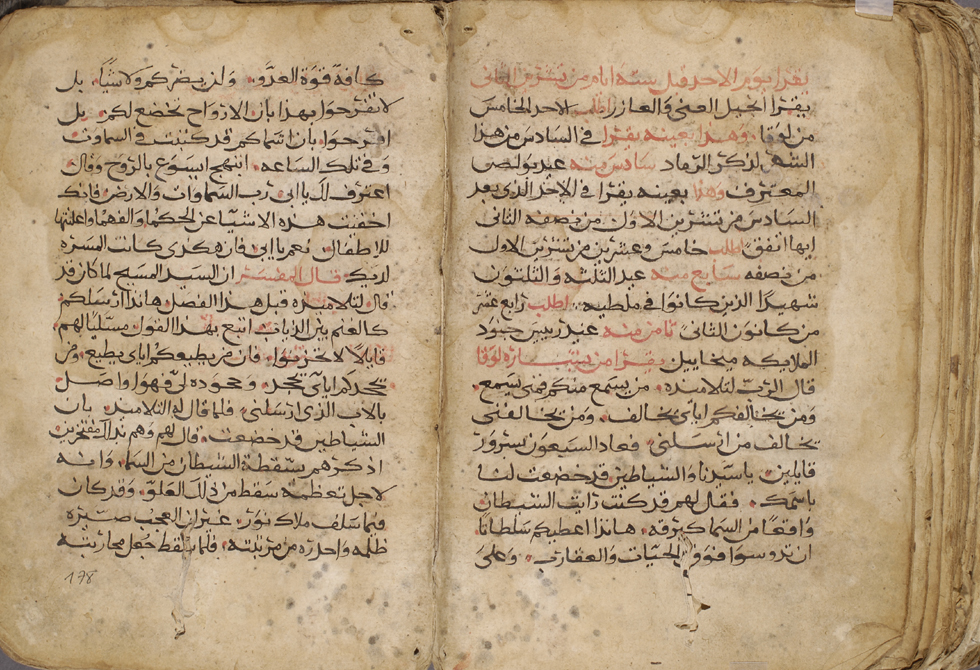 يقرا يوم الاحد قبل ستة ايام من تشرين الثاني
يقرا انجيل الغني والعازر اطلب الاحد الخامس
من لوقا وهذا بعينه يقرا في السادس من هذا
الشهر لذكر الرماد سادس منه عيد بولص
المعترف وهذا بعينه يقرا في الاحد الذي بعد
السادس من تشرين الاول من نصفه الثاني
ايها اتفق اطلب خامس وعشرين من تشرين الاول
من نصفه سابع منه عيد الثلثه والثلثون
شهيدًا الذين كانوا في ملطيه اطلب رابع عشر
من كانون الثاني ثامن منه عيد رييس جنود
الملايكه ميخاييل يقرا من بشارة لوقا
قال الرب لتلاميذه من يسمع منكم فمني يسمع
ومن يخالفكم اياي يخالف ومن يخالفني
يخالف من ارسلني فعاد السبعون بسرور
قايلين ياسيدنا والشياطين قد خضعت لنا
باسمك فقال لهم قد كنت رايت الشيطان
واقعًا من السما كبرقه هانذا اعطيكم سلطانًا
ان تدوسوا فوق الحيات والعقارب وعلى
كافة قوة العدو ولن يضركم ولا شيًا بل
لا تفرحوا بهذا بان الارواح تخضع لكم بل
افرحوا بان اسماكم قد كتبت في السماوت
وفي تلك الساعه ابتهج ايسوع بالروح وقال
اعترف لك ياابي رب السماوات والارض فانك
اخفيت هذه الاشيا عن الحكما والفهما واعلنتها
للاطفال نعم ياابي فان هكذى كانت المسره
لديك قال المفسر ان السيد المسيح لما كان قد
قال لتلاميذه قبل هذا الفصل هانذا ارسلكم
كالغنم بين الذياب اتبع بهذا القول مسليًا لهم
قايلاً لا تحزنوا فان من يطيعكم اياي يطيع ومن
يجحدكم اياي يجحد وجحوده لي فهو واصل
بالاب الذي ارسلني فلما قال له التلاميذ بان
الشياطين قد خضعت قال لهم وهم بذلك مفتخرين
اذكرهم بسقطة الشيطان من السما وانه
لاجل تعظمه سقط من ذلك العلو وقد كان
فيما سلف ملاك نور غير ان العجب صيره
ظلمه واحدره من مرتبته فلما سقط جعل محاربته
178